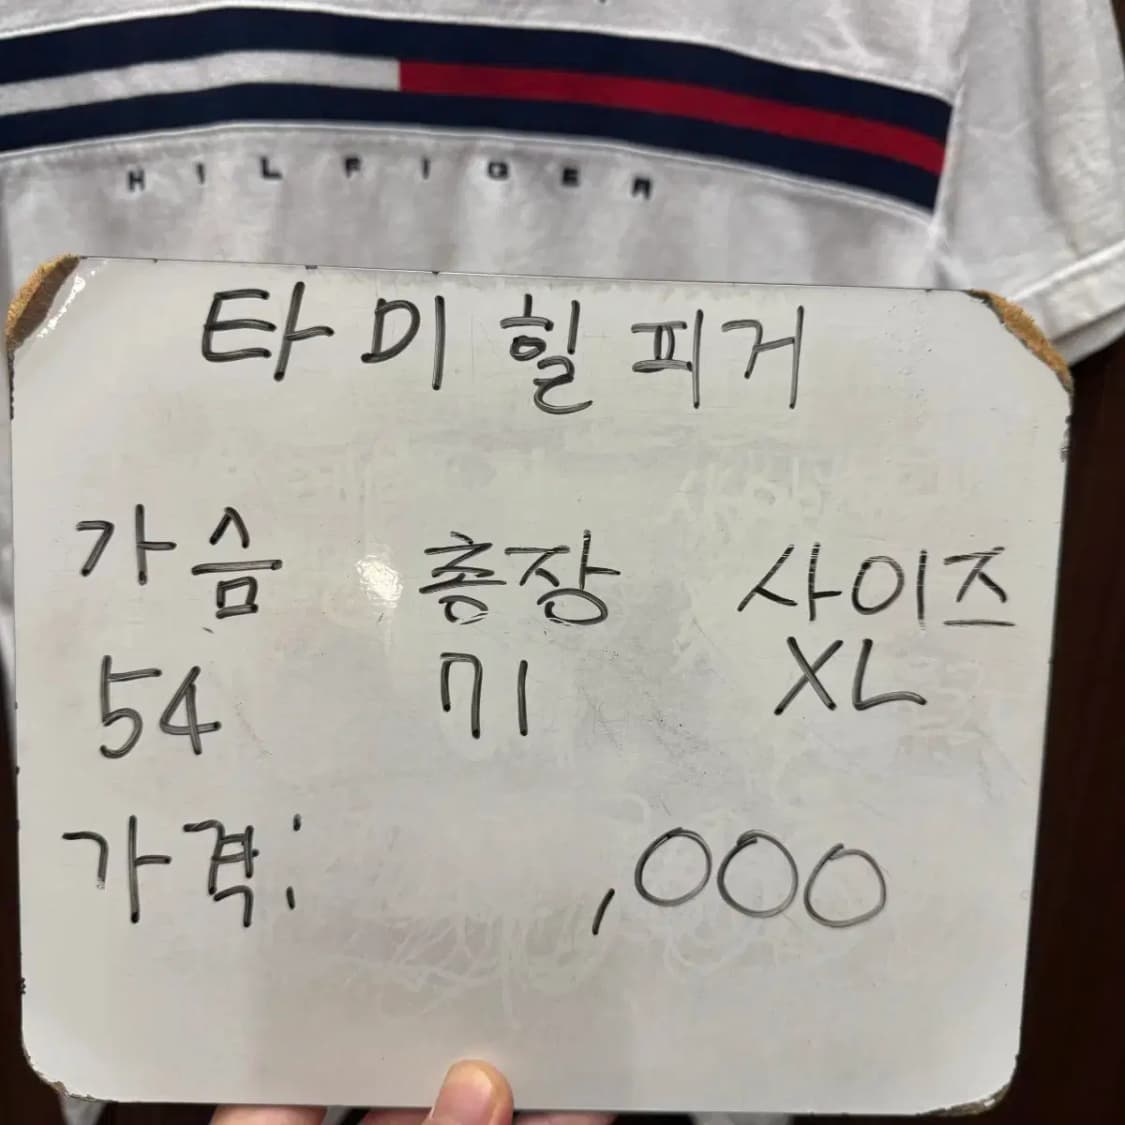 HILFIGER
타미힐피거
가슴 총장 사이즈
54 71 XL
가격: ,000